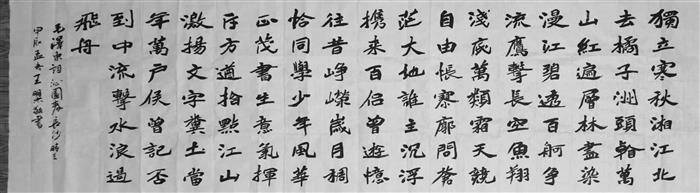 獨立寒秋湘江北
去橘子洲頭看萬
山紅遍層林盡染
漫江碧透百舸爭
流鷹擊長空魚翔
淺底萬類霜天競
自由悵寥廓問蒼
茫大地誰主沉浮
携來百侶曾遊憶
往昔崢嶸歲月稠
恰同學少年風華
正茂書生意氣揮
斥方遒指點江山
激揚文字糞土當
年萬戶侯曾記否
到中流擊水浪遏
飛舟
毛澤東詞沁園春長沙
甲辰孟冬王書